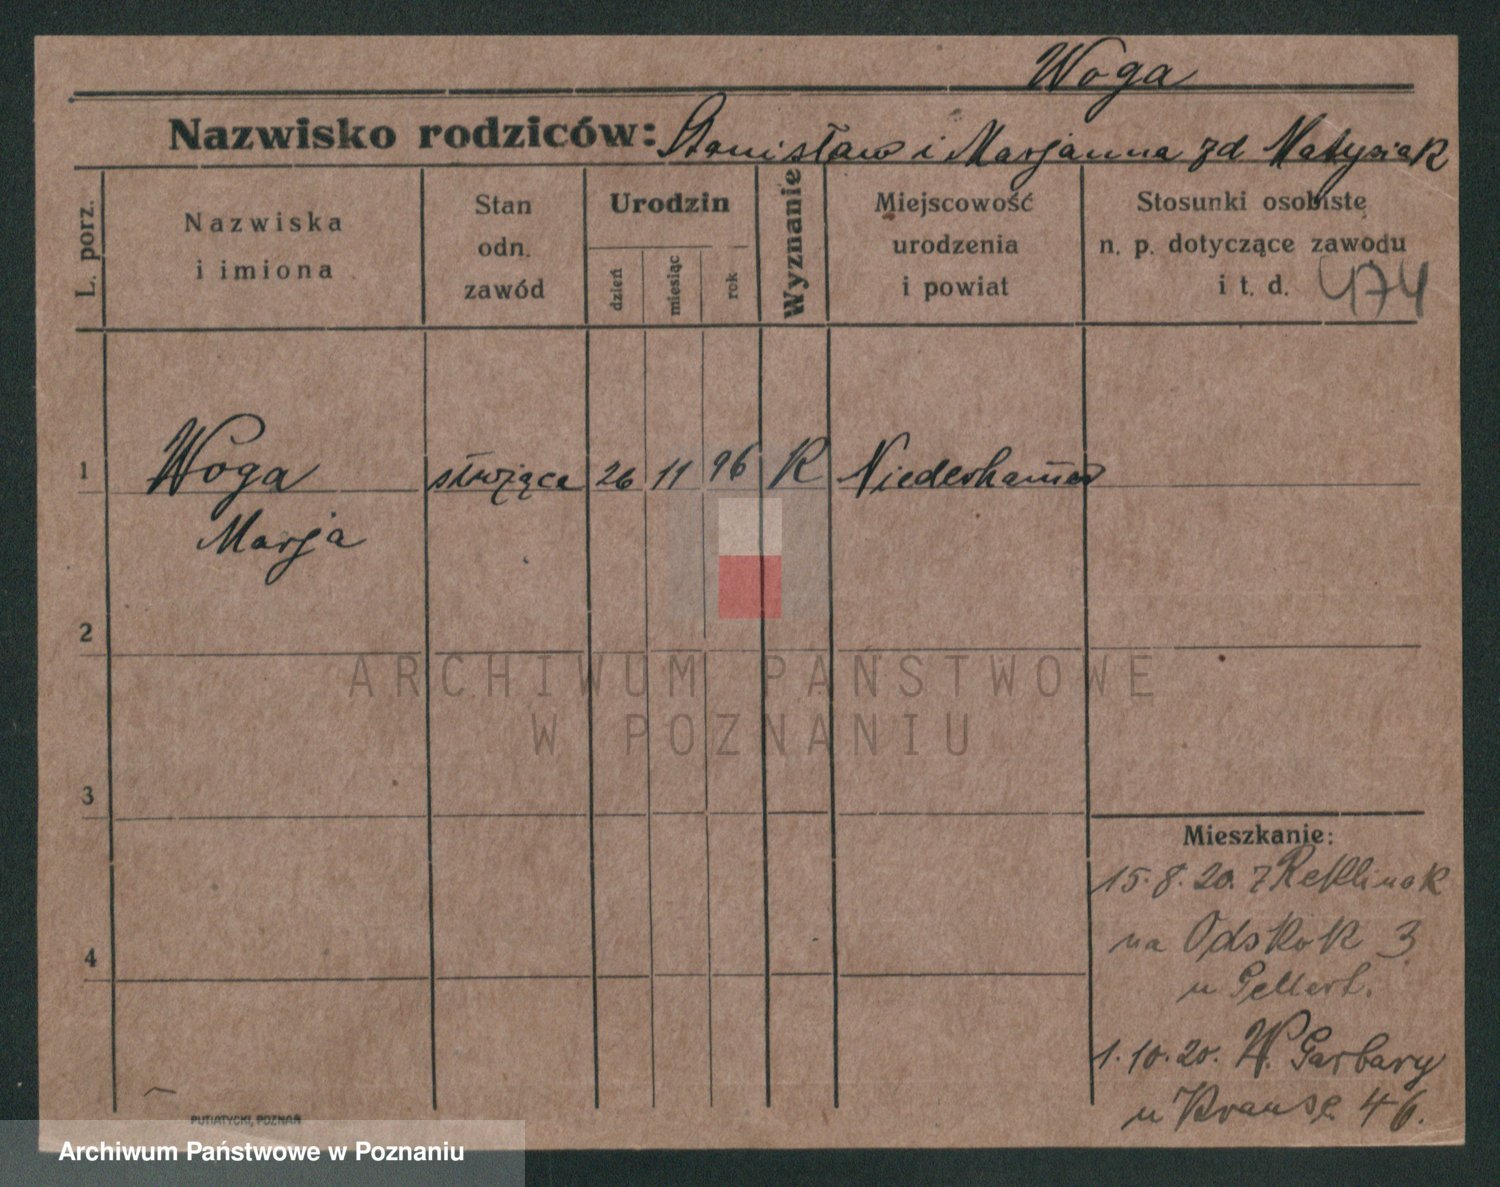 Woga
Nazwisko rodziców: Stanisław i Marjanna zd Matysiak
L. porz.
Nazwiska
i imiona
Stan
odn.
zawód
Urodzin
dzień
miesiąc
rok
Wyznanie
Miejscowość
urodzenia
i powiat
Stosunki osobiste
n. p. dotyczące zawodu
i t. d.
474
1
Woga służąca 26 11 96 R Niederhamer
Marja
2
3
4
Mieszkanie:
15.8.20. z Reklinak
na Odskok 3
u Gellert.
1.10.20. W. Garbary
u Krause 46.
PUTIATYCKI, POZNAŃ
ARCHIWUM PAŃSTWOWE
W POZNANIU
Archiwum Państwowe w Poznaniu